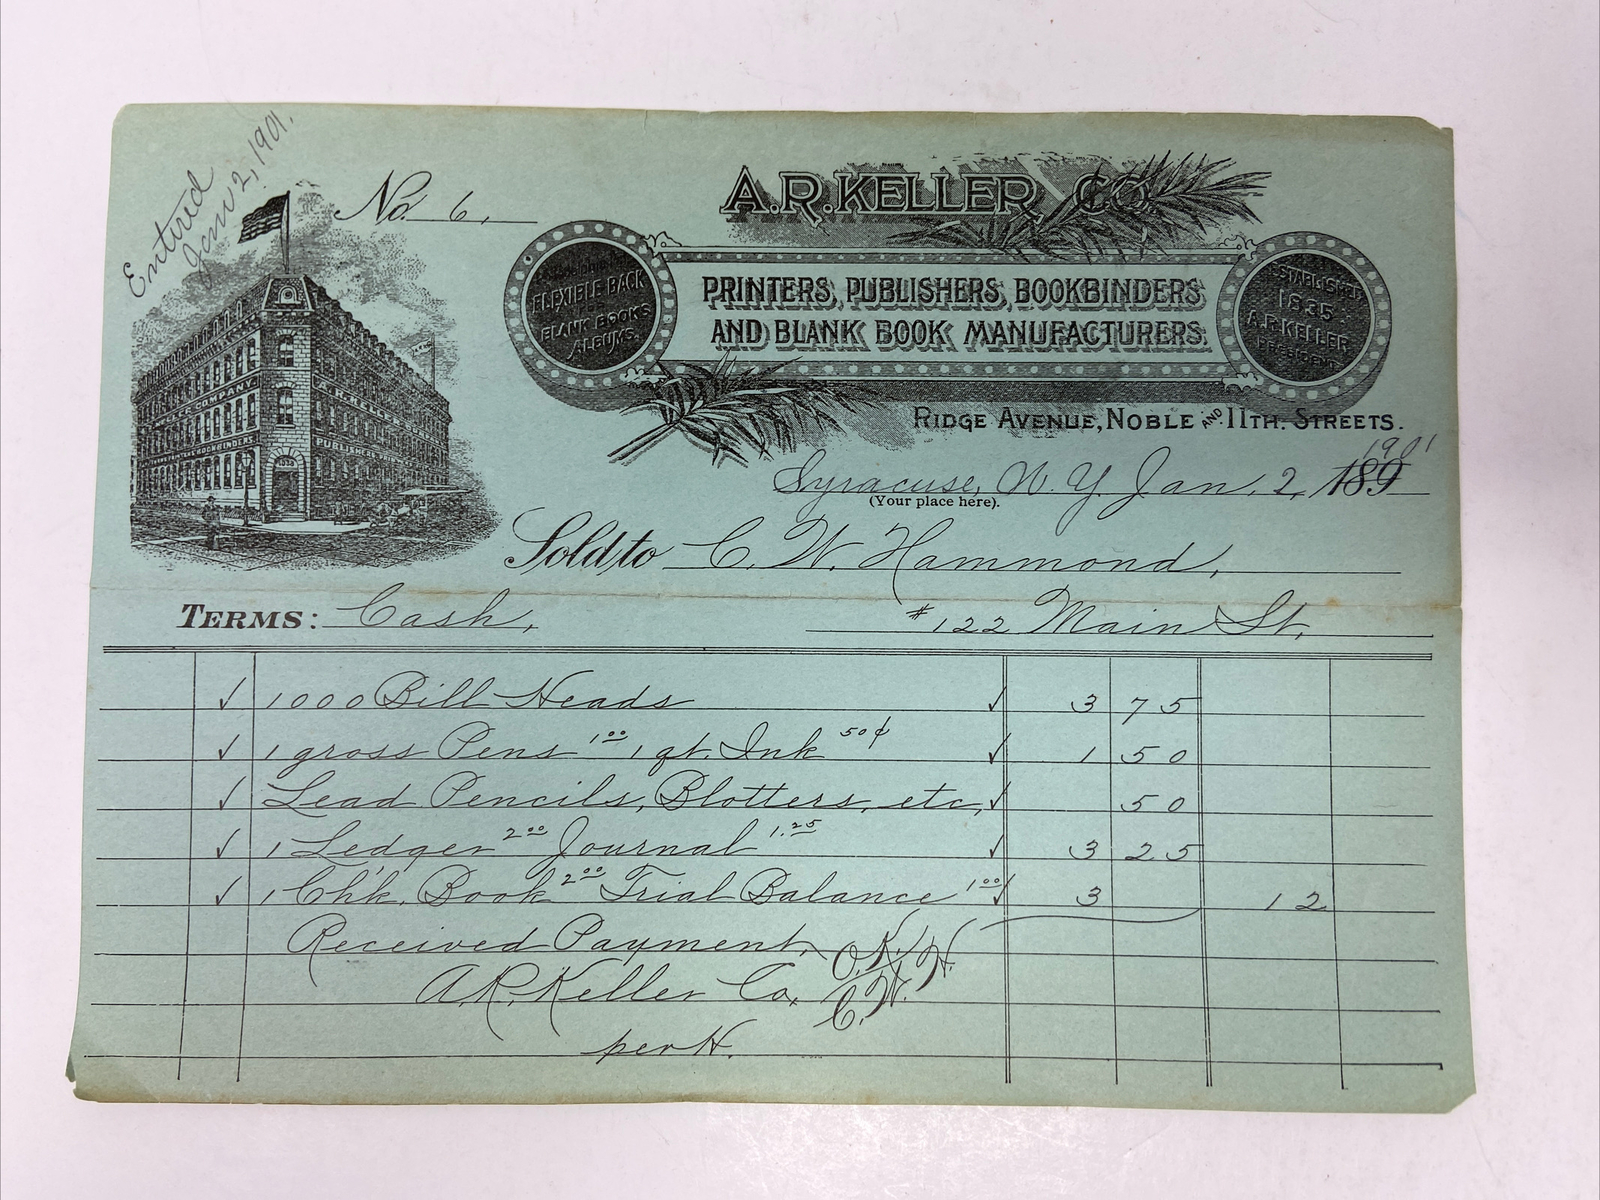 Entered
Jan'y 2, 1901.
No. 6,
A.R. KELLER CO.
FLEXIBLE BACK
BLANK BOOKS
ALBUMS.
PRINTERS, PUBLISHERS, BOOKBINDERS
AND BLANK BOOK MANUFACTURERS.
ESTABLISHED
1835
A.R. KELLER
PRESIDENT
COMPANY
A.R. KELLER
BOOKBINDERS
PUBLISHERS
RIDGE AVENUE, NOBLE AND 11TH. STREETS.
Syracuse, N.Y. Jan. 2, 189 1901
(Your place here).
Sold to C. W. Hammond,
TERMS: Cash, #122 Main St,
✓ 1000 Bill Heads ✓ 3 75
✓ 1 gross Pens 1.00 1 qt. Ink 50¢ ✓ 1 50
✓ Lead Pencils, Blotters, etc, ✓ 50
✓ 1 Ledger 2.00 Journal 1.25 ✓ 3 25
✓ 1 Chk. Book 2.00 Trial Balance 1.00 ✓ 3 12
Received Payment, O.K.
A.R. Keller Co, C.W.H.
per H.